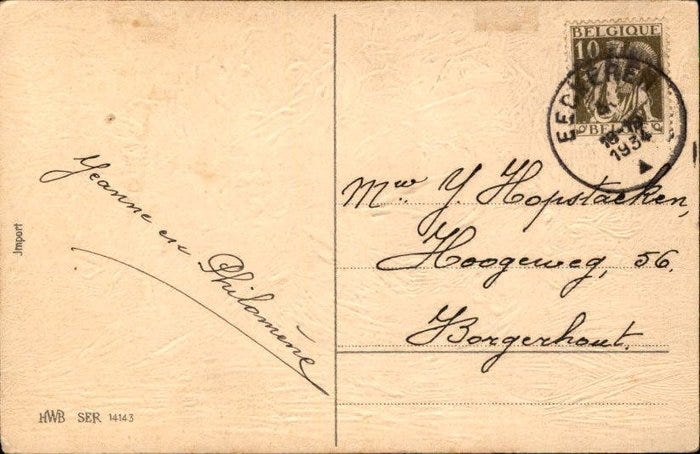 BELGIQUE
10
BELG
EECKEREN
1934
Jeanne en Philomène
Mw J. Hopstacken,
Hoogeweg, 56.
Borgerhout.
Import
HWB SER 14143